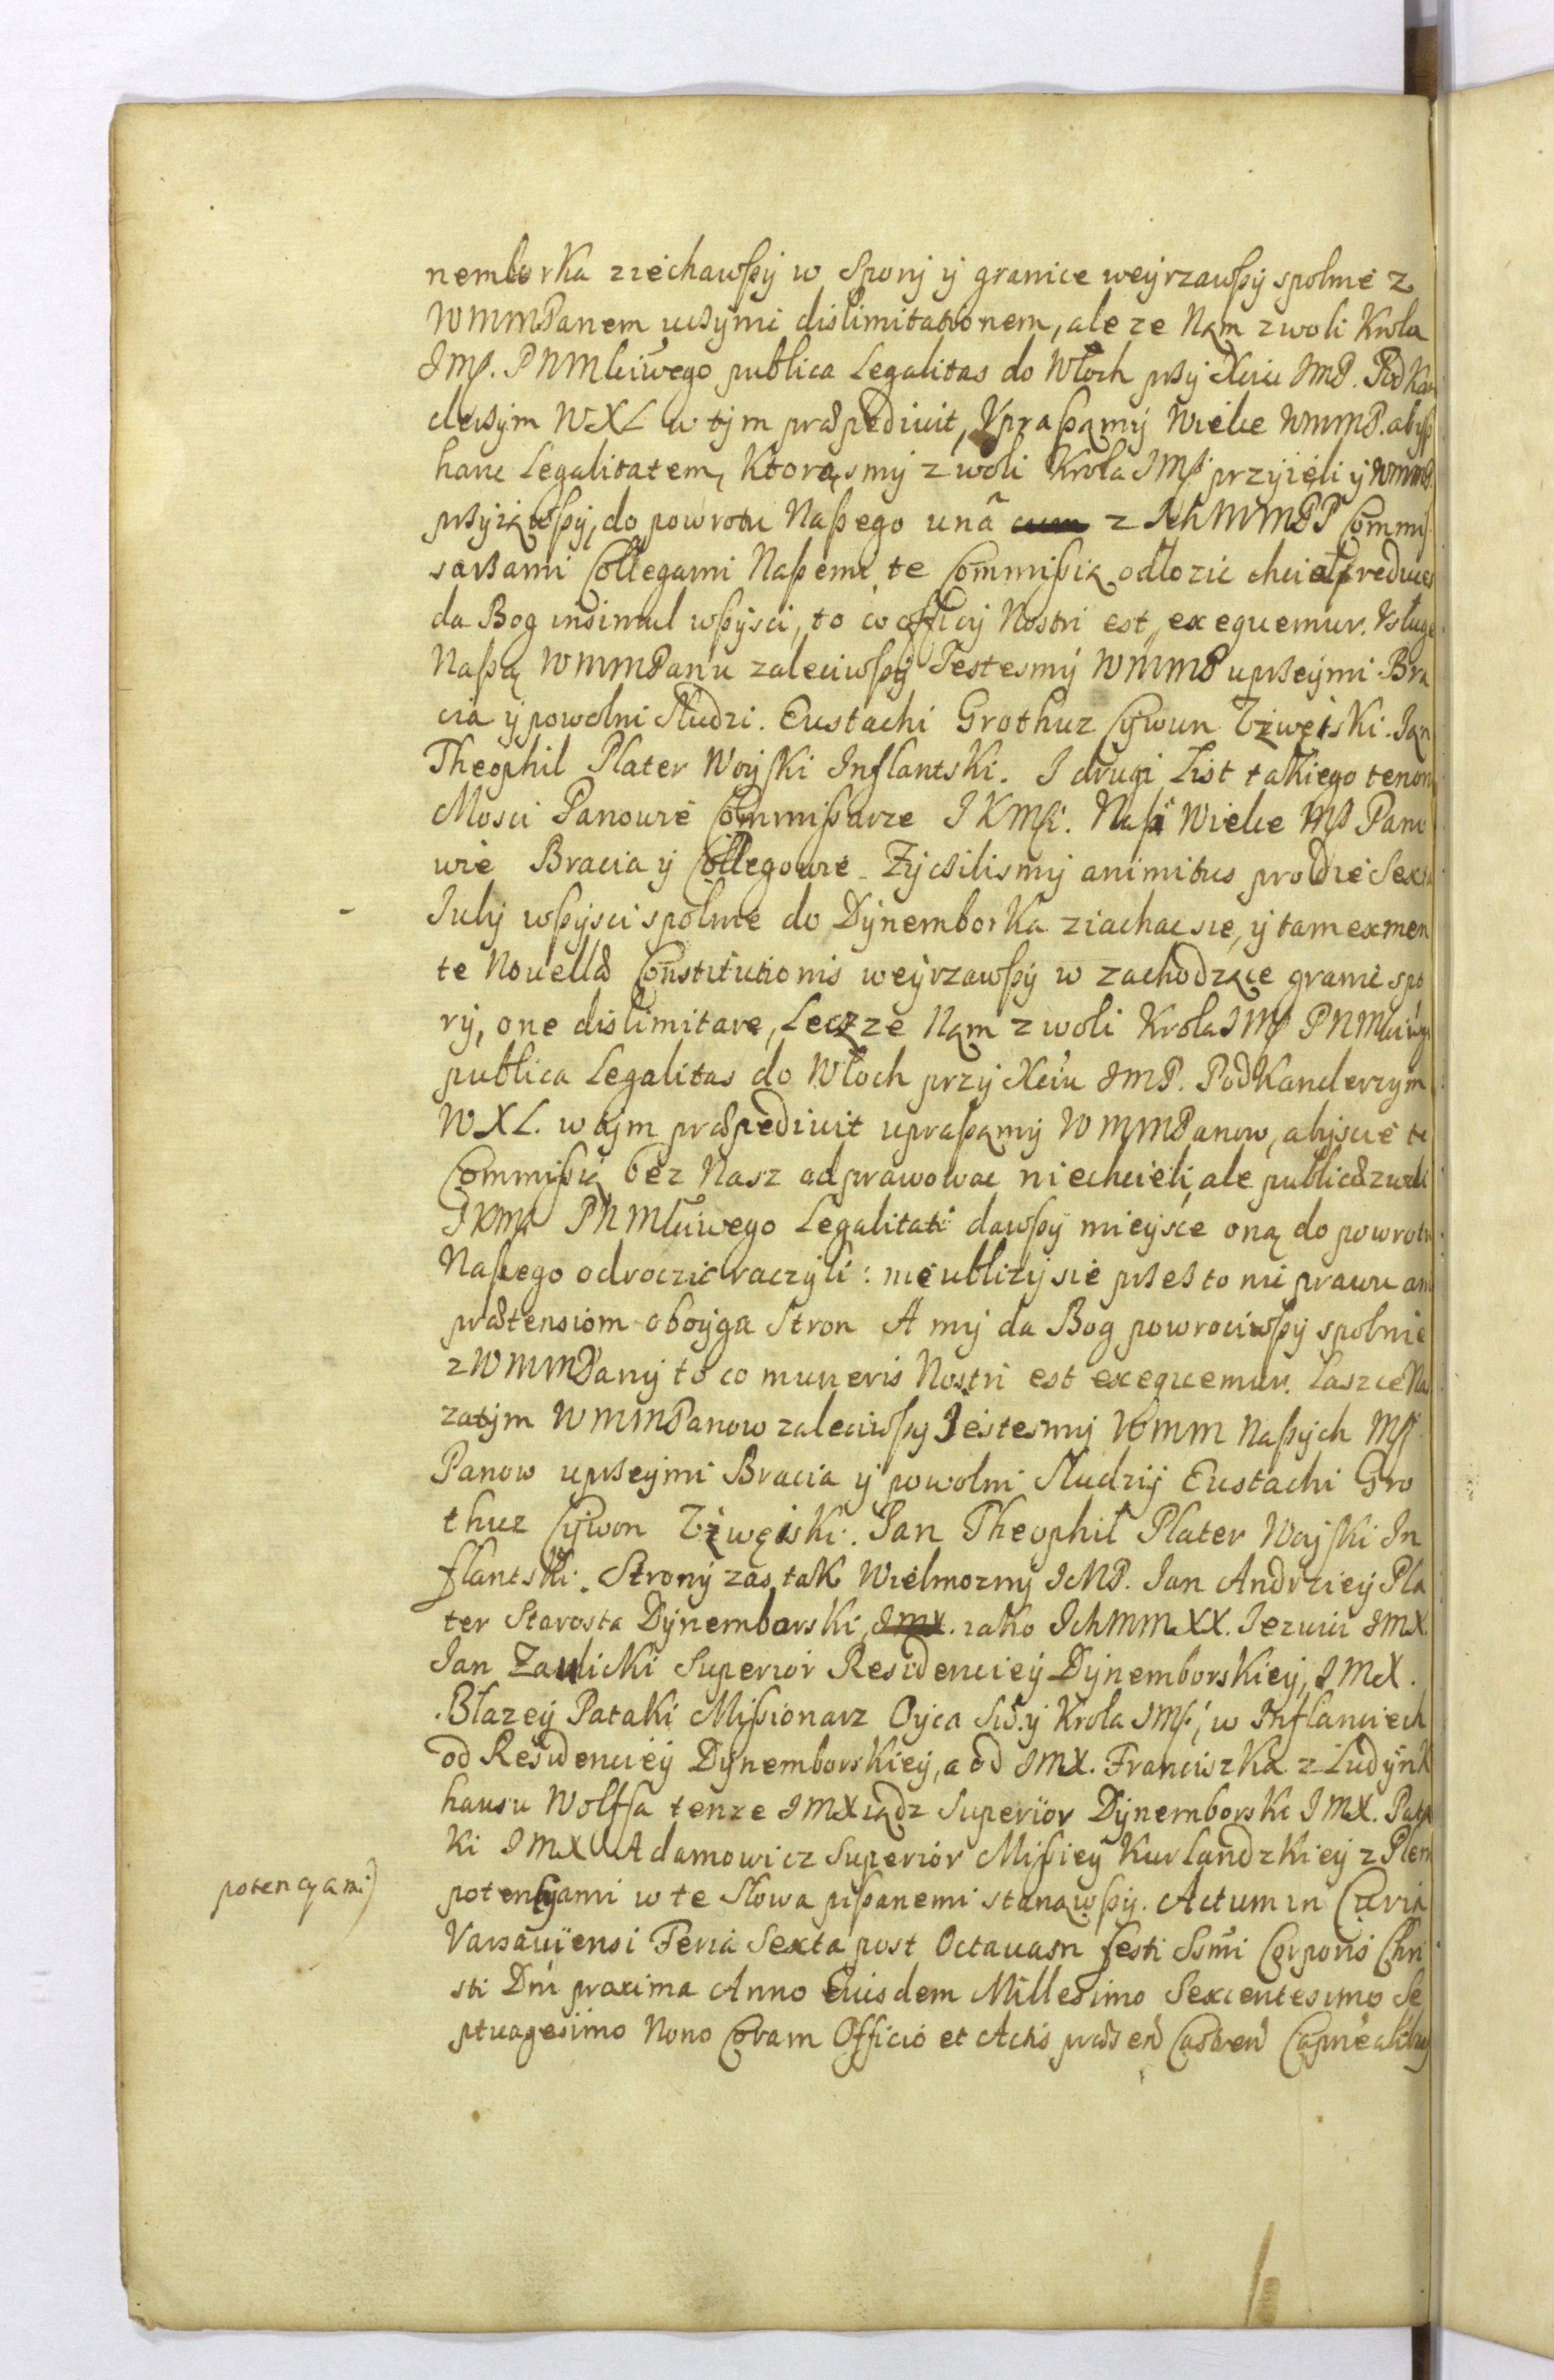 nemborka ziechawszy w Spory y granice weyrzawszy spolnie z
WMMPanem uczynic dislimitationem, ale ze Nam z woli Krola
JMſ. PNMlciwego publica Legalitas do Włoch przy Xciu JMP. PodKan
clerzym WXL w tym præpedivit, Upraszamy Wielce WMMP. abyſ
hanc Legalitatem, Ktorąsmy z woli Krola JMſ przyięli y WMMP.
przyiąwszy, do powrotu Naszego unâ z IchMMPP Commiſ
sarzami Collegami Naszemi te Commissią odłozic chciał, reduces
da Bog insimul wszysci, to co officij Nostri est, exequemur. Usługe
Naszą WMMPanu zaleciwszy Jestesmy WMMP uprzeymi Bra
cia y powolni Słudzi. Eustachi Grothuz Cywun Tżwęiski. Jan
Theophil Plater Woyſki Inflantski. I drugi List takiego tenoru
Mosci Panowie Commissarze JKMſci. Naszi Wielce Mſ Pano
wie Bracia y Collegowie. Zyczilismy animitus pro die Sexta
July wszysci spolnie do Dynemborka ziachac sie, y tam ex men
te Novellæ Constitutionis weyrzawszy w zachodzące granic spo
ry, one dislimitare, Lecz ze Nam z woli Krola JMſ PNMlciwgo
publica Legalitas do Włoch przy Xciu JMP. PodKanclerzym
WXL. w tym præpedivit upraszamy WMMPanow, abyscie te
Commissią bez Nasz odprawowac niechcieli, ale publicæ z woli
JKMſci PNMlciwego Legalitati dawszy mieysce oną do powrotu
Naszego odroczic raczyli: nie ubliży sie przez to ni prawu ani
prætensiom oboyga Stron A my da Bog powrociwszy spolnie
z WMMPany to co muneris Nostri est exequemur. Łaszce Na
zatym WMMPanow zaleciwszy Jestesmy WMM Naszych Mſ
Panow uprzeymi Bracia y powolni Słudzy Eustachi Gro
thuz Cywon Tżwęiski. Jan Theophil Plater Woyſki In
flantski. Strony zas tak Wielmozny JeMP. Jan Andrziey Pla
ter Starosta Dynemborski, JMX. iako IchMMXX. Jezuici JMX.
Jan Zawicki Superior Residenciey Dynemborskiey, JMX.
Błazey Pataki Missionarz Oyca Sw. y Krola JMſci, w Inflanciech
od Residenciey Dynemborskiey, a od JMX. Franciszka z Ludynk
hausu Wolffa tenze JMXiądz Superior Dynemborski JMX. Pata
ki JMX Adamowicz Superior Missiey Kurlandzkiey z Plen
potencyami)
potencyami w te Słowa piszanemi stanąwszy. Actum in Curia
Varsaviensi Feria Sexta post Octavam festi Ssmi Corporis Chri
sti Dni proxima Anno Eiusdem Millesimo Sexcentesimo Se
ptuagesimo Nono Coram Officio et Actis præsen Castren Capnealibus